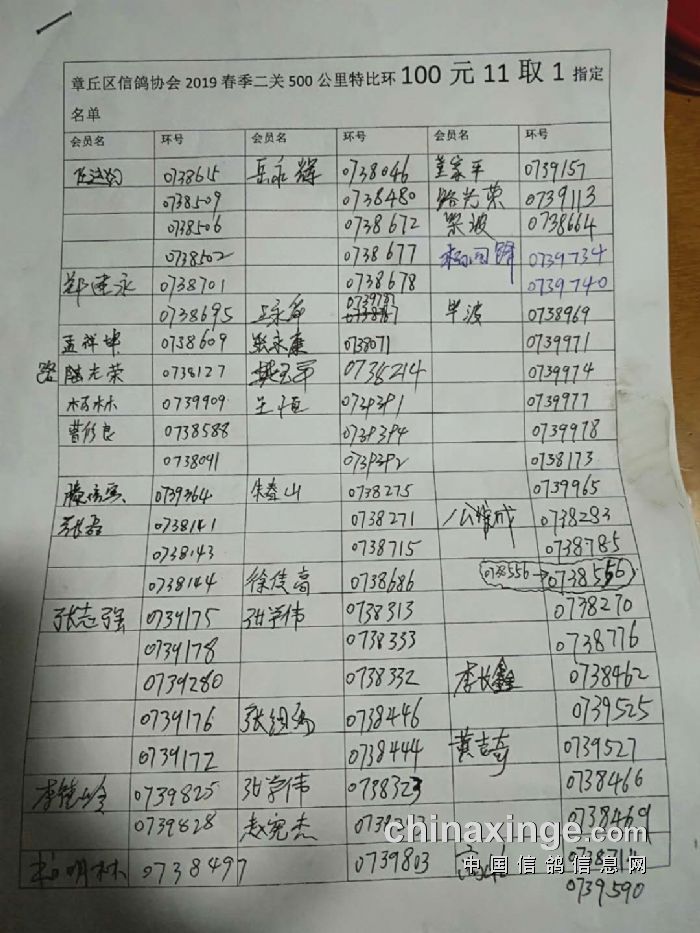 章丘区信鸽协会2019春季二关500公里特比环100元11取1指定
名单
会员名 环号 会员名 环号 会员名 环号
0738615 岳永辉 0738046 董家平 0739157
0738509 0738480 路光荣 0739113
0738506 0738672 梁波 0738664
0738502 0738677 0739734
郑建永 0738701 0738678 0739740
0738695 0739781 毕波 0738969
孟祥坤 0738609 张永康 0738071 0739971
路光荣 0738127 0738214 0739974
杨林 0739909 王恒 0739391 0739977
曹修良 0738588 0739394 0739978
0738091 0739392 0738173
0739364 朱登山 0738275 0739965
张磊 0738141 0738271 公维成 0738283
0738143 0738715 0738785
0738144 徐传高 0738686 0738556 0738556
张志强 0739175 张学伟 0738313 0738270
0739178 0738333 0738776
0739280 0738332 李长鑫 0738462
0739176 0738446 0739525
0739172 0738444 黄吉奇 0739527
0739825 张学伟 0738323 0738466
0739828 赵宪杰 0738469
杨明林 0738497 0739803
0739590
chinaxinge.com
中国信鸽信息网